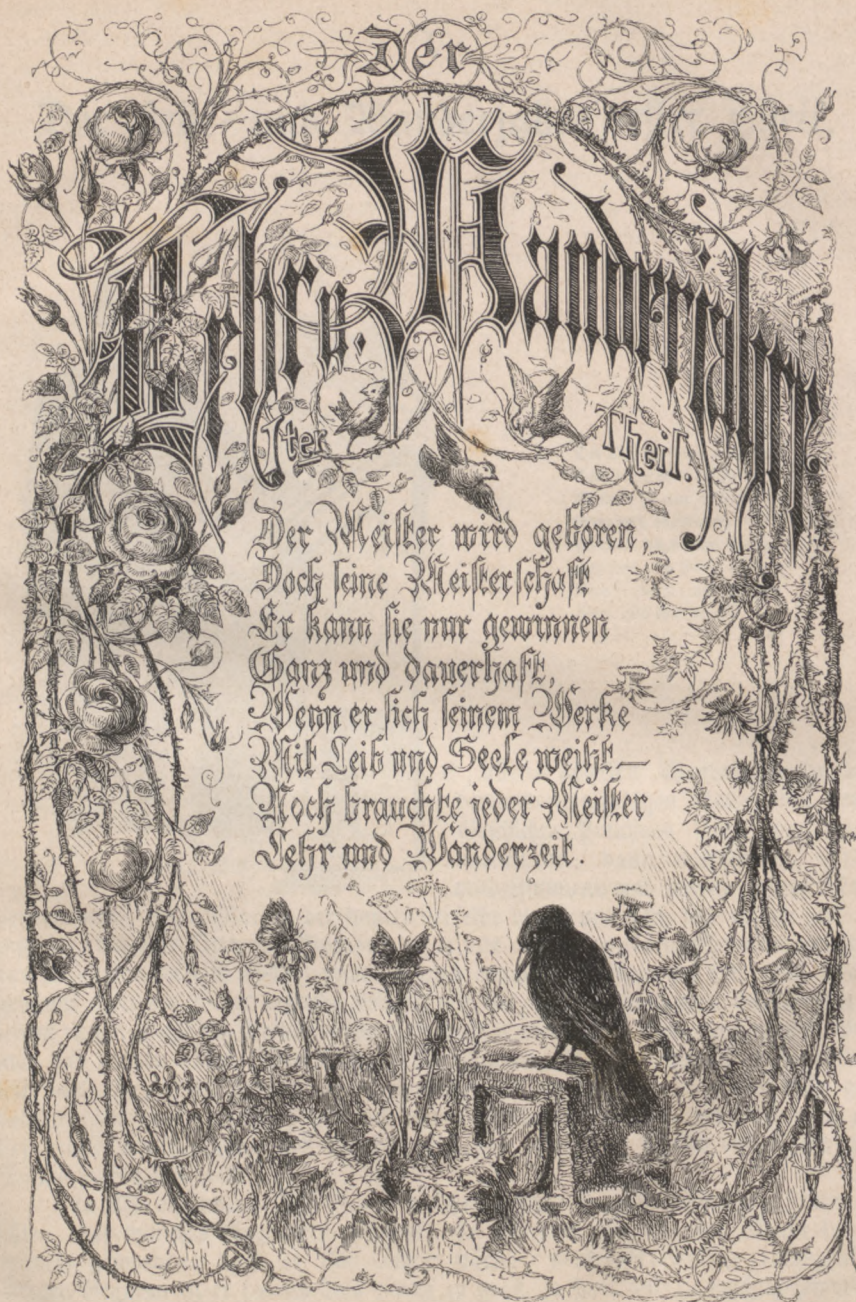 Der
Lehr u. Wanderjahre
1ter Theil.
Der Meister wird geboren,
Doch seine Meisterschaft
Er kann sie nur gewinnen
Ganz und dauerhaft,
Wenn er sich seinem Werke
Mit Leib und Seele weiht—
Noch brauchte jeder Meister
Lehr und Wanderzeit.